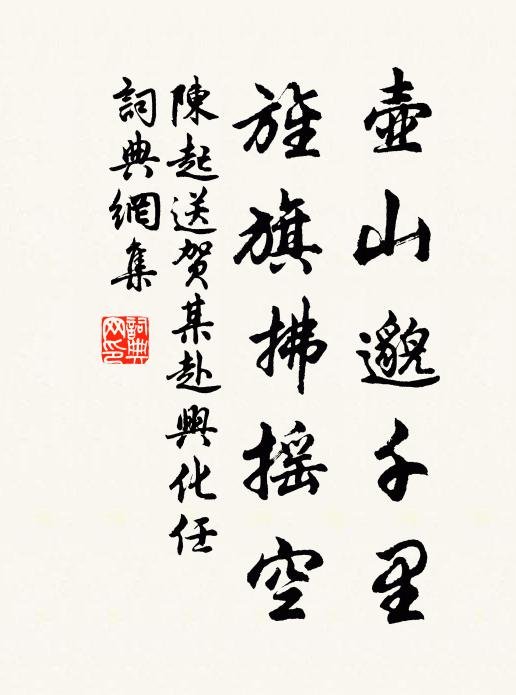 壺山邈千里
旌旗拂摇空
陳起送贺某赴興化任
詞典網集
詞典
网印